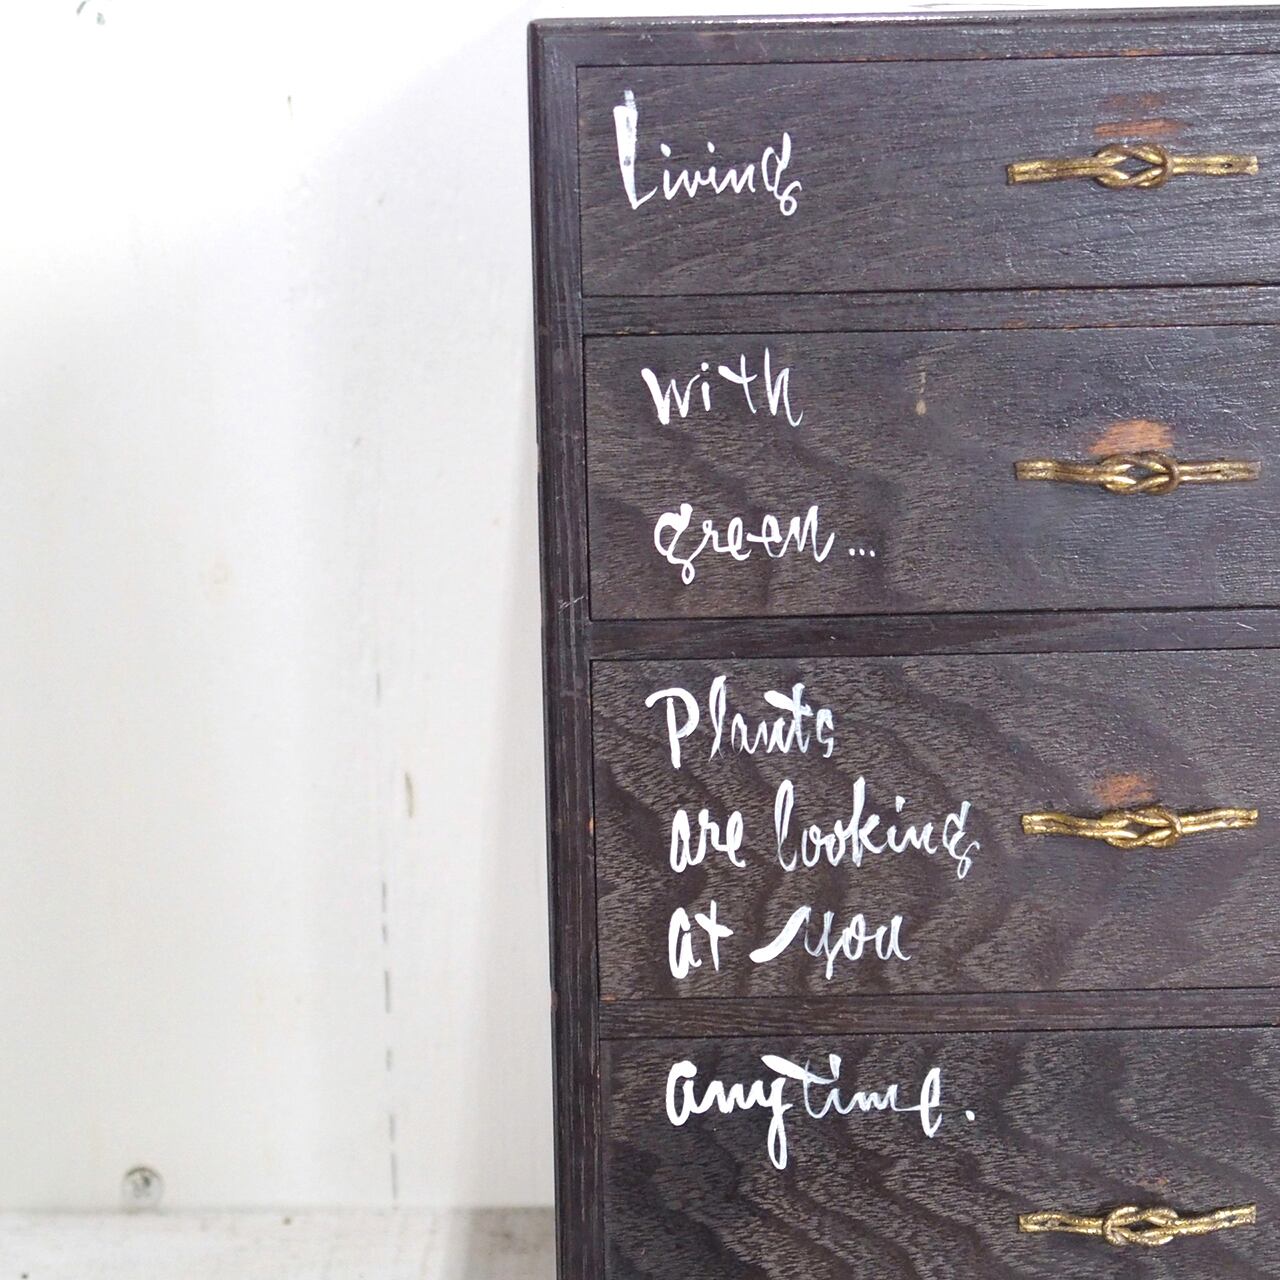 Living
with
green...
Plants
are looking
at you
anytime.